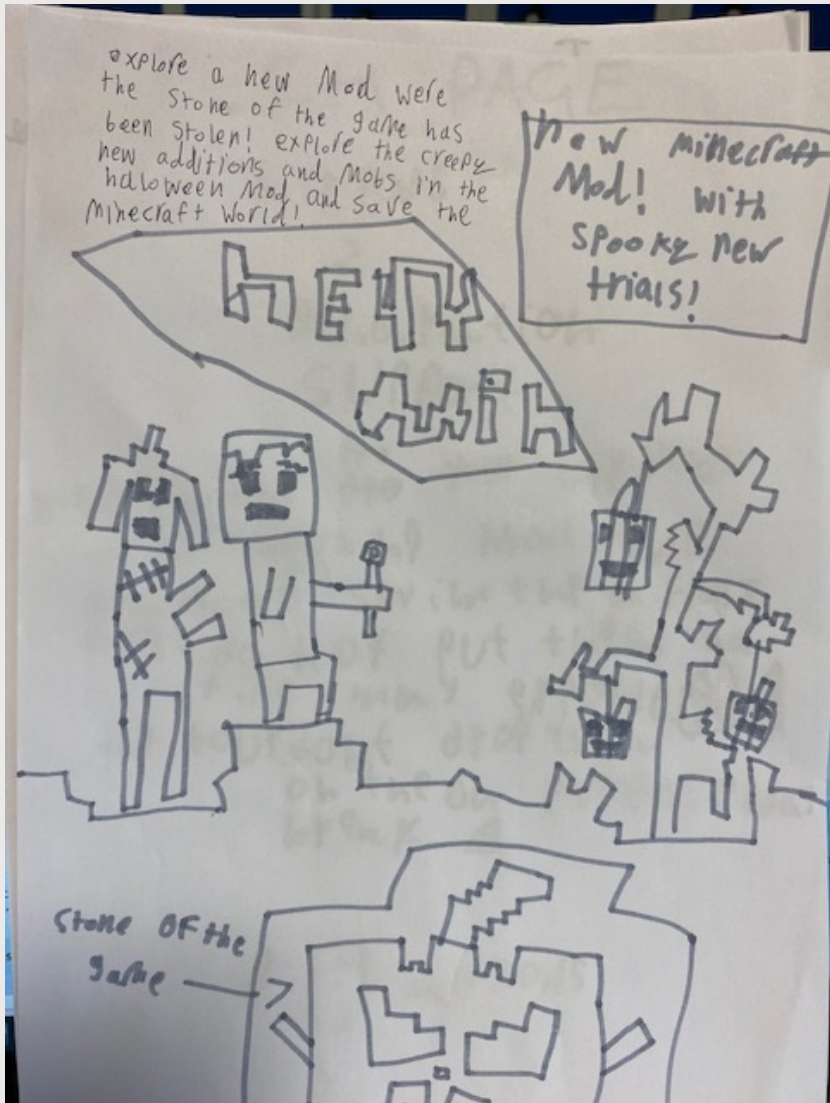 explore a new Mod were
the Stone of the game has
been Stolen! explore the creepy
new additions and Mobs in the
haloween Mod and save the
Minecraft World!
new minecraft
Mod! with
spooky new
trials!
Stone OF the
game